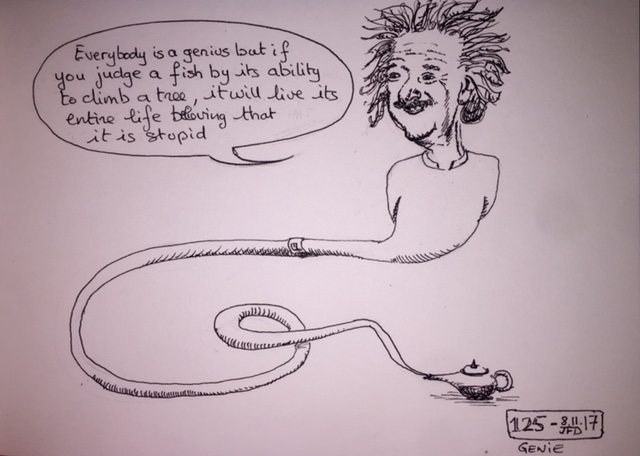 Everybody is a genius but if
you judge a fish by its ability
to climb a tree, it will live its
entire life believing that
it is stupid
125 - 8.11.17
JFD
GENIE